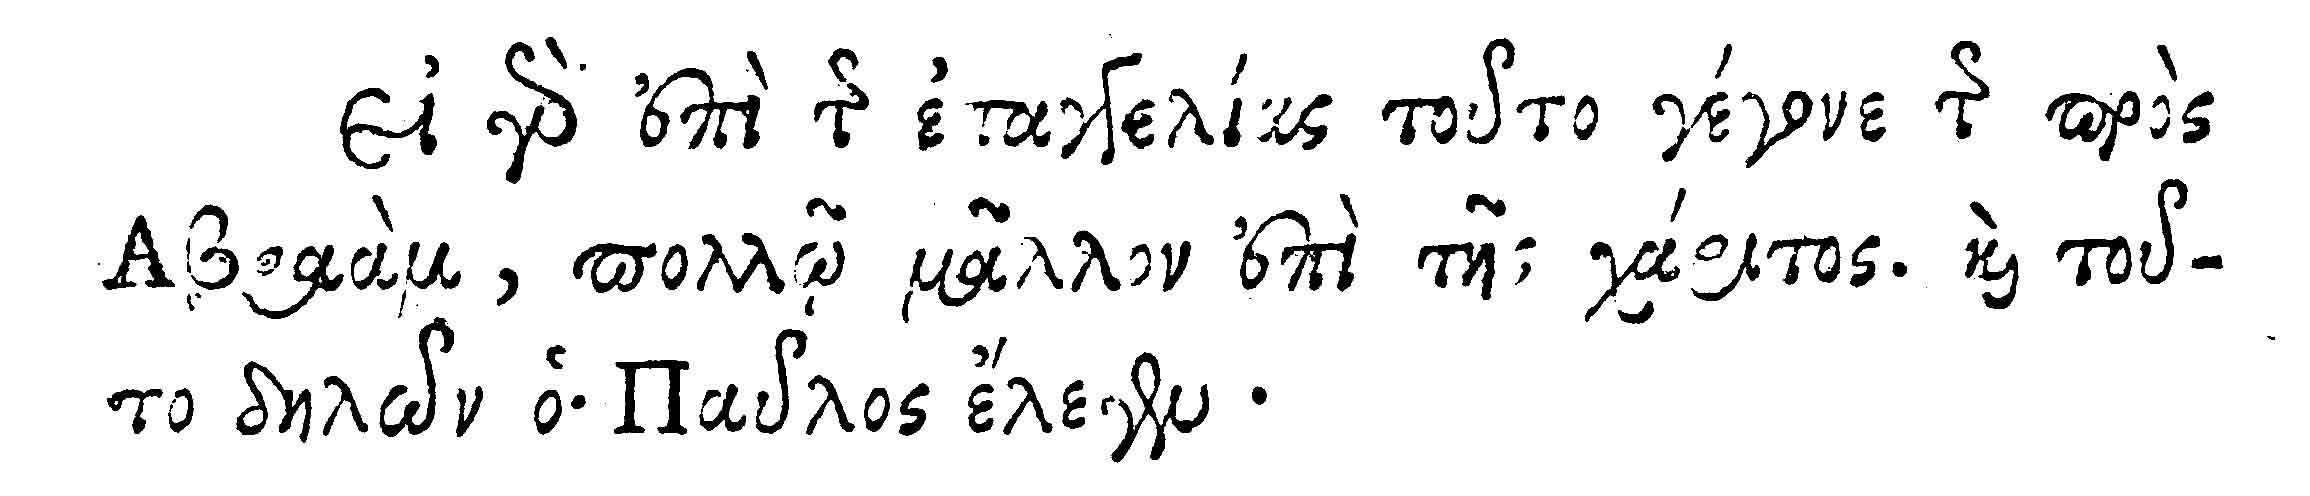 εἰ γὰρ ἐπὶ τῆς ἐπαγγελίας τοῦτο γέγονε τῆς πρὸς
Ἀβραὰμ, πολλῷ μᾶλλον ἐπὶ τῆς χάριτος. καὶ τοῦ-
το δηλῶν ὁ Παῦλος ἔλεγεν.